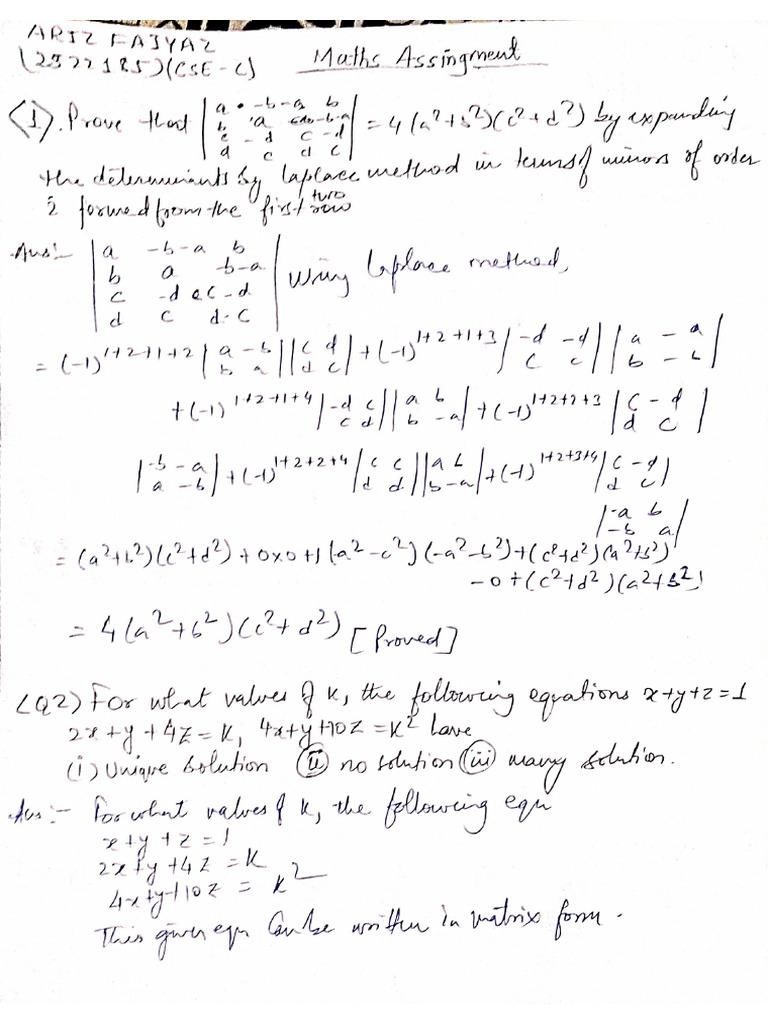 ARIZ FAIYAZ
(2522185)(CSE-C) Maths Assingment
(1). Prove that |a -b -a b| = 4(a²+b²)(c²+d²) by expanding
|b a -b -a|
|c -d c -d|
|d c d c|
the determinants by laplace method in terms of minors of order
2 formed from the first two row
Ans:- |a -b -a b|
|b a -b -a| Using laplace method,
|c -d c -d|
|d c d c|
= (-1)^1+2+1+2 |a -b| |c d| + (-1)^1+2+1+3 |-d -d| |a -a|
|b a| |d c| |c c| |b -b|
+(-1)^1+2+1+4 |-d c| |a b| + (-1)^1+2+2+3 |c -d|
|c d| |b -a| |d c|
|-b -a| + (-1)^1+2+2+4 |c c| |a b| + (-1)^1+2+3+4 |c -d|
|a -b| |d d| |b -a| |d c|
|-a b|
|-b a|
= (a²+b²)(c²+d²) + 0x0 + 1(a²-c²)(-a²-b²) + (c²+d²)(a²+b²)
-0+(c²+d²)(a²+b²)
= 4(a²+b²)(c²+d²) [Proved]
(Q2) For what values of k, the following equations x+y+z=1
2x+y+4z=k, 4x+y+10z=k² have
(i) Unique solution (ii) no solution (iii) many solution.
Ans:- For what values of k, the following equ
x+y+z=1
2x+y+4z=k
4x+y+10z = k²
This given equ Can be written in matrix form.